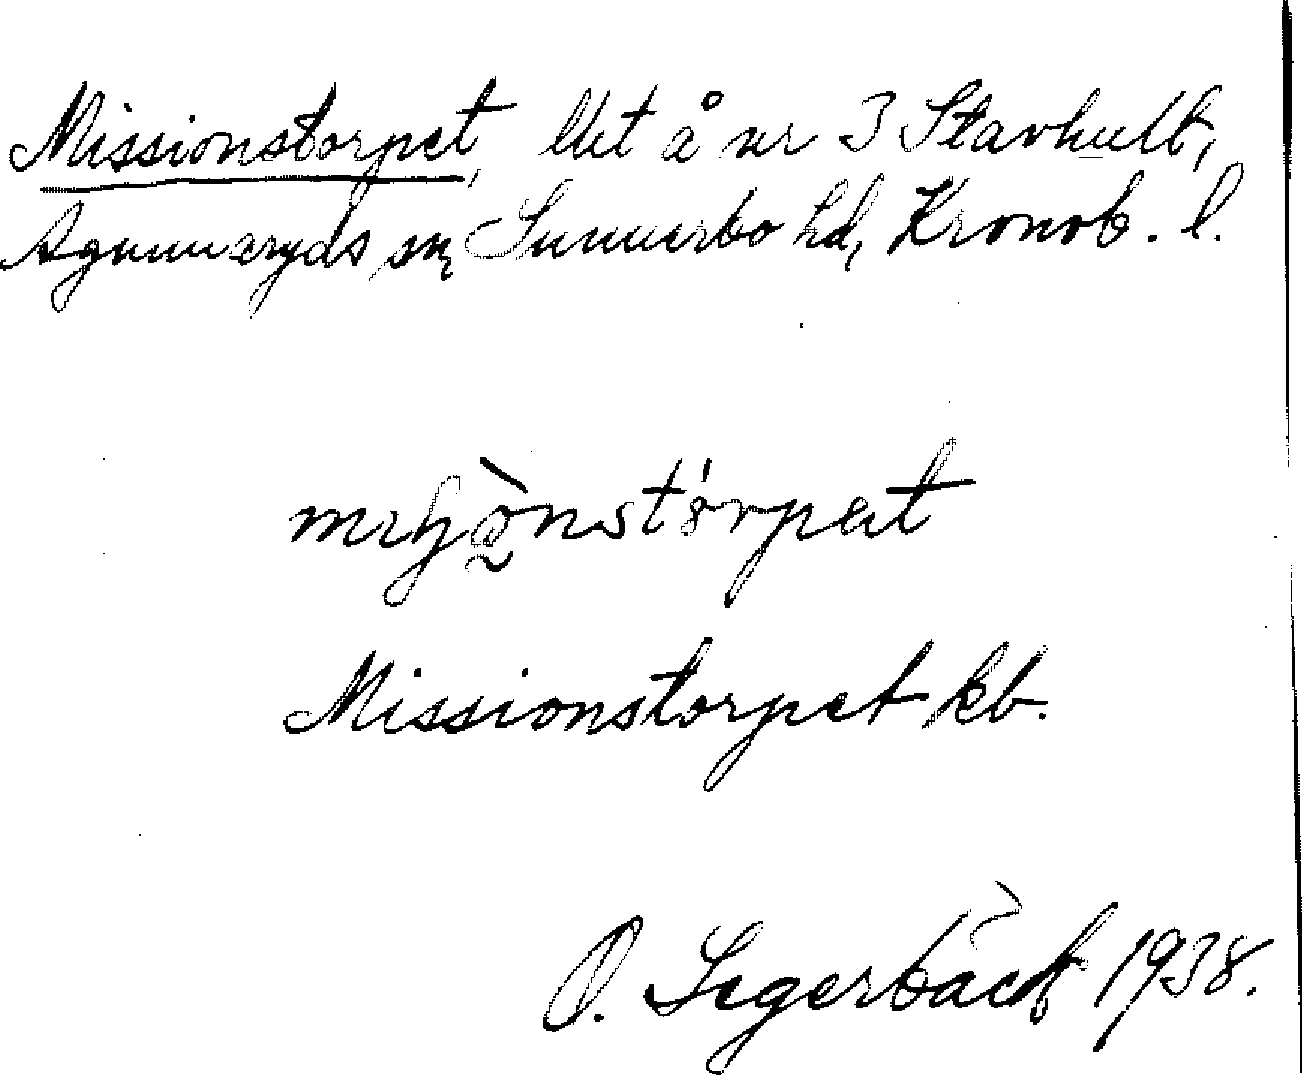 Missionstorpet, lht å nr 3 Stavhult,
Agunnaryds sn, Sunnerbo hd, Kronob. l.
Missionstorpet kb.
O. Segerbäck 1938.